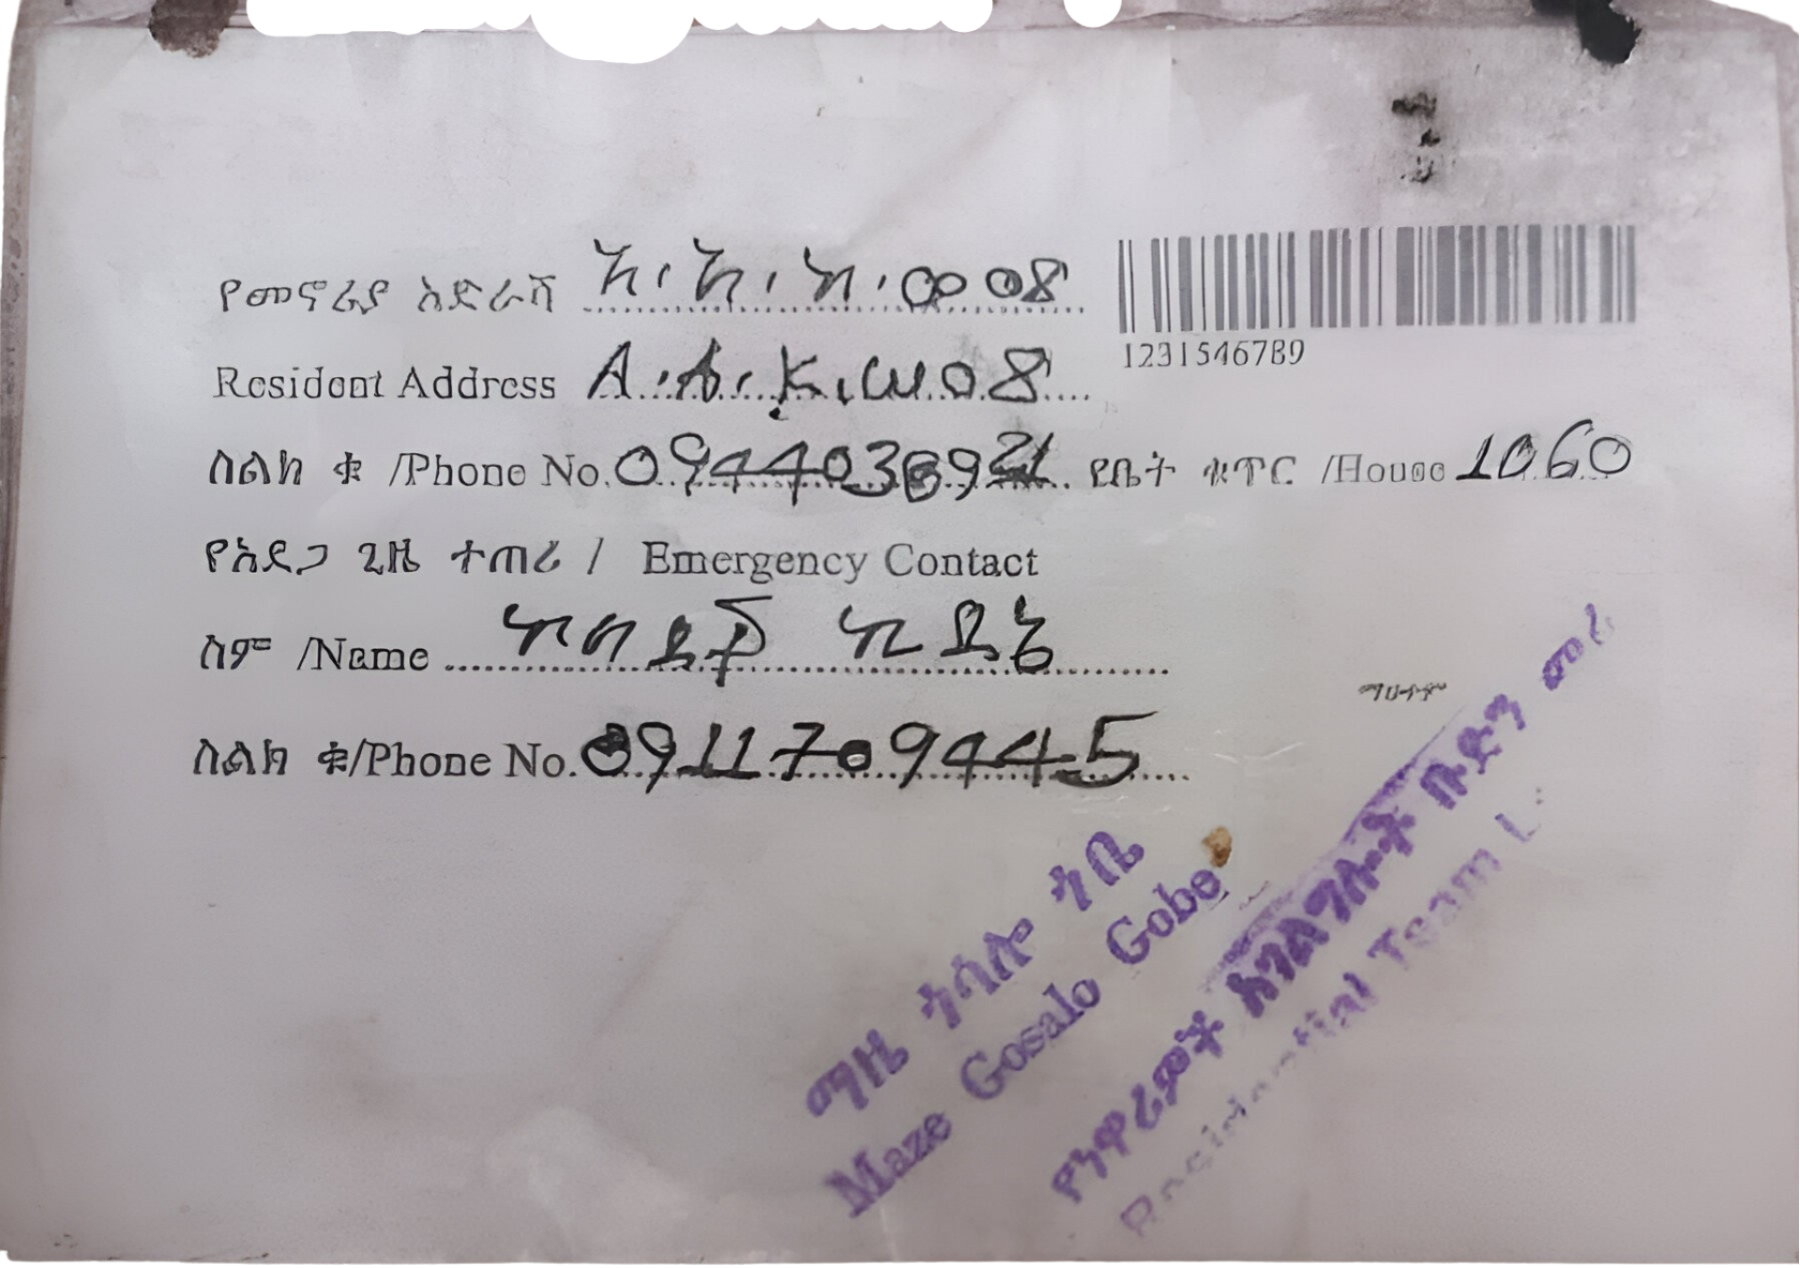 የመኖሪያ አድራሻ አ.አ.አ.ወ 08
1231546789
Resident Address A.A.K.W 08
ስልክ ቁ /Phone No. 09440369 የቤት ቁጥር /House 1060
የአደጋ ጊዜ ተጠሪ / Emergency Contact
ስም /Name
ስልክ ቁ/Phone No. 0911709445
ማህተም
ማዜ ጎሳሎ ጎቤ
Maze Gosalo Gobe
የነዋሪዎች አገልግሎቶች ቡድን መሪ
Residential Team L